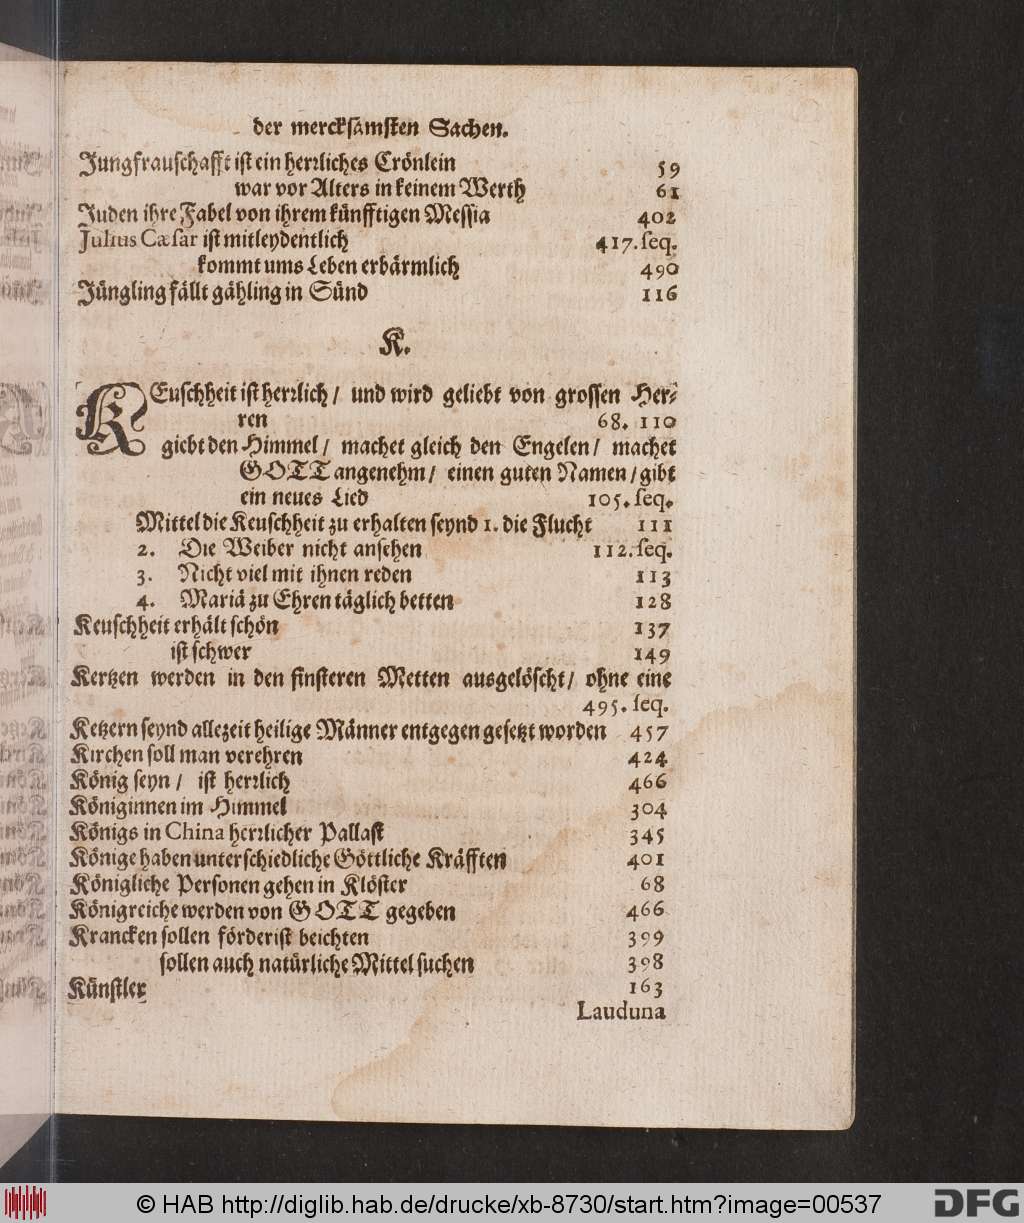 der mercksamsten Sachen.
Jungfrauschafft ist ein herrliches Crönlein 59
war vor Alters in keinem Werth 61
Juden ihre Fabel von ihrem künfftigen Messia 402
Julius Cæsar ist mitleydentlich 417. seq.
kommt ums Leben erbärmlich 490
Jüngling fällt gähling in Sünd 116
K.
KEuschheit ist herrlich / und wird geliebt von grossen Her-
ren 68. 110
giebt den Himmel / machet gleich den Engelen / machet
GOTT angenehm / einen guten Namen / gibt
ein neues Lied 105. seq.
Mittel die Keuschheit zu erhalten seynd 1. die Flucht 111
2. Die Weiber nicht ansehen 112. seq.
3. Nicht viel mit ihnen reden 113
4. Mariä zu Ehren täglich betten 128
Keuschheit erhält schön 137
ist schwer 149
Kertzen werden in den finsteren Metten ausgelöscht / ohne eine
495. seq.
Ketzern seynd allezeit heilige Männer entgegen gesetzt worden 457
Kirchen soll man verehren 424
König seyn / ist herrlich 466
Königinnen im Himmel 304
Königs in China herrlicher Pallast 345
Könige haben unterschiedliche Göttliche Kräfften 401
Königliche Personen gehen in Klöster 68
Königreiche werden von GOTT gegeben 466
Krancken sollen förderist beichten 399
sollen auch natürliche Mittel suchen 398
Künstler 163
Lauduna
© HAB http://diglib.hab.de/drucke/xb-8730/start.htm?image=00537
DFG